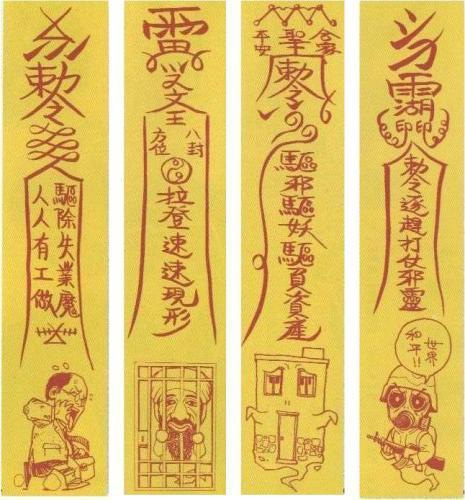 勅令
驅除失業魔
人人有工做
雷
文王
八封
方位
拉登速速現形
合家
聖
平安
敕令
驅邪驅妖驅負資產
印印
勅令逐趕打仗邪靈
世界
和平!!